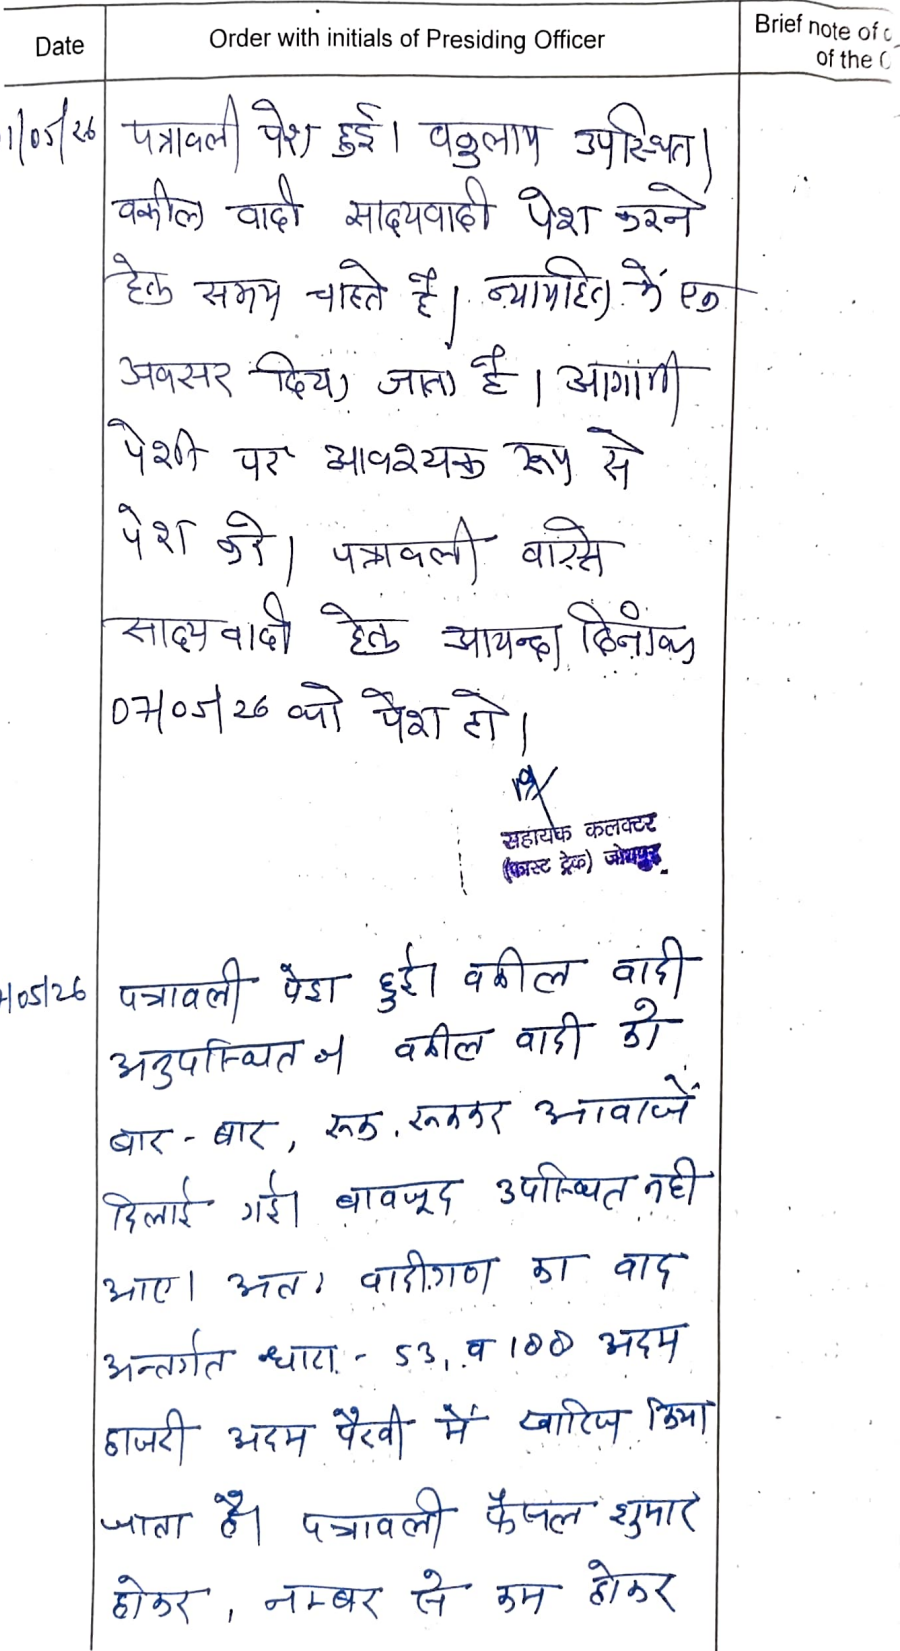 Date
Order with initials of Presiding Officer
Brief note of
of the
1/05/26
पत्रावली पेश हुई। वकुलाय उपस्थित।
वकील वादी साक्ष्यवादी पेश करने
हेतु समय चाहते है। न्यायहित में एक
अवसर दिया जाता है। आगामी
पेशी पर आवश्यक रूप से
पेश करे। पत्रावली वास्ते
साक्ष्यवादी हेतु आयन्दा दिनांक
07/05/26 को पेश हो।
सहायक कलक्टर
(फास्ट ट्रेक) जोधपुर
/05/26
पत्रावली पेश हुई। वकील वादी
अनुपस्थित। वकील वादी को
बार-बार, रूक-रूककर आवाजें
दिलाई गई। बावजूद उपस्थित नही
आए। अतः वादीगण का वाद
अन्तर्गत धारा - 53, व 188 अदम
हाजरी अदम पैरवी में खारिज किया
जाता है। पत्रावली फैसल शुमार
होकर, नम्बर से कम होकर